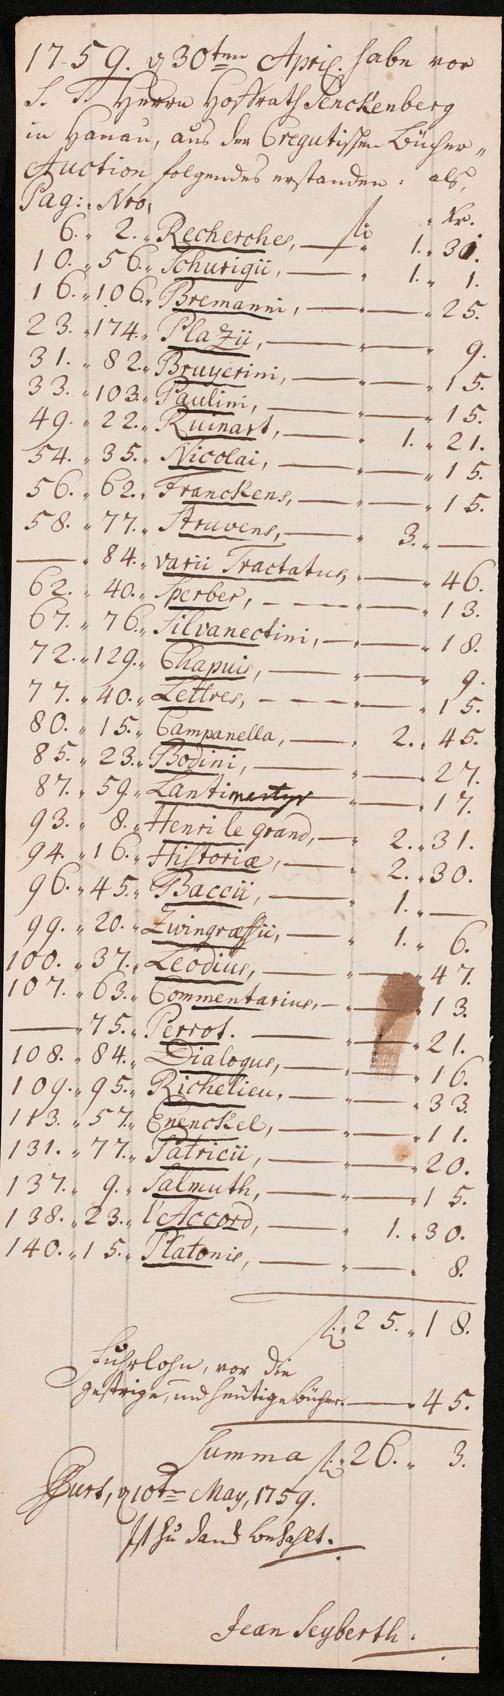 1759. d 30ten April. habe vor
S. T. Herrn Hoffrath Senckenberg
in Hanau, aus der Cregutischen Bücher„
Auction folgendes erstanden: als,
Pag: Nro. fl. Kr.
6. „ 2. „ Recherches, — „ 1. „ 30.
10. „ 56. „ Schurigii, — „ 1. „ 1.
16. „ 106. „ Bremanni, — „ — „ 25.
23. „ 174. „ Plazii, — „ — „ 9.
31. „ 82. „ Bruyerini, — „ — „ 15.
33. „ 103. „ Paulini, — „ — „ 15.
49. „ 22. „ Ruinart, — „ 1. „ 21.
54. „ 35. „ Nicolai, — „ — „ 15.
56. „ 62. „ Franckens, — „ — „ 15.
58. „ 77. „ Struvens, — „ 3. „ —
— „ 84. „ varii Tractatus, „ — „ 46.
62. „ 40. „ Sperber, — „ — „ 13.
67. „ 76. „ Silvanectini, — „ — „ 18.
72. „ 129. „ Chapuis, — „ — „ 9.
77. „ 40. „ Lettres, — „ — „ 15.
80. „ 15. „ Campanella, — „ 2. „ 45.
85. „ 23. „ Bodini, — „ — „ 27.
87. „ 59. „ Lantimartyr — „ — „ 17.
93. „ 8. „ Henri le grand, — „ 2. „ 31.
94. „ 16. „ Historiæ, — „ 2. „ 30.
96. „ 45. „ Baccii, — „ 1. „ —
99. „ 20. „ Zwingræffii, — „ 1. „ 6.
100. „ 37. „ Leodius, — „ — „ 47.
107. „ 63. „ Commentarius, — „ — „ 13.
— „ 75. „ Perrot. — „ — „ 21.
108. „ 84. „ Dialogus, — „ — „ 16.
109. „ 95. „ Richelieu, — „ — „ 33.
113. „ 57. „ Enenckel, — „ — „ 11.
131. „ 77. „ Patricii, — „ — „ 20.
137. „ 9. „ Salmuth, — „ — „ 15.
138. „ 23. „ l'Accord, — „ 1. „ 30.
140. „ 15. „ Platonis, — „ — „ 8.
fl. 25. „ 18.
Fuhrlohn, vor die
gestrige, und heutige Bücher. — „ 45.
Summa fl. 26. „ 3.
Ffurt, d 10ten May, 1759.
Ist zu Danck bezahlt.
Jean Seyberth.